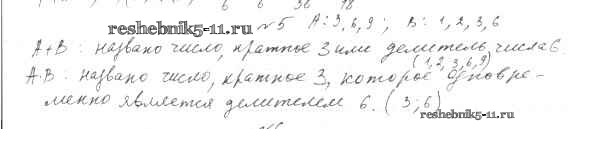 6 6 36 18
reshebnik5-11.ru
№5 A: 3, 6, 9; B: 1, 2, 3, 6
A+B: названо число, кратное 3 или делитель числа 6.
(1, 2, 3, 6, 9)
A·B: названо число, кратное 3, которое одновре-
менно является делителем 6. (3; 6)
reshebnik5-11.ru